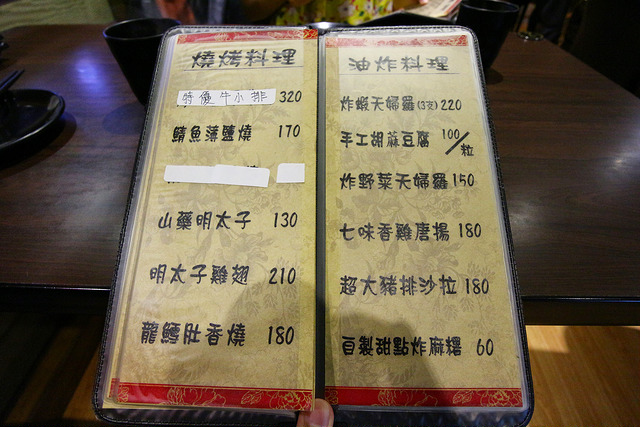 燒烤料理
特優牛小排 320
鯖魚薄鹽燒 170
山藥明太子 130
明太子雞翅 210
龍鱈肚香燒 180
油炸料理
炸蝦天婦羅(3支) 220
手工胡蔴豆腐 100/粒
炸野菜天婦羅 150
七味香雞唐揚 180
超大豬排沙拉 180
自製甜點炸麻糬 60